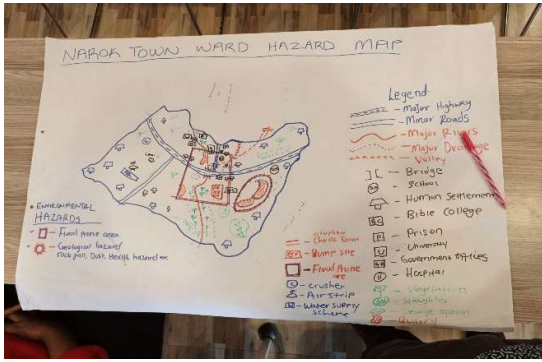 NAROK TOWN WARD HAZARD MAP
Legend
- Major Highway
- Minor Roads
- Major Rivers
- Major Drainage
- Valley
- Bridge
- School
- Human Settlement
- Bible College
- Prison
- University
- Government offices
- Hospital
- Vegetation
- Slaughter
- Sewage system
- Quarry
ENVIRONMENTAL
HAZARDS
- Flood Prone area
- Geological hazard/
- Dump site
- Flood Prone
- crusher
- Air strip
- Water supply
scheme